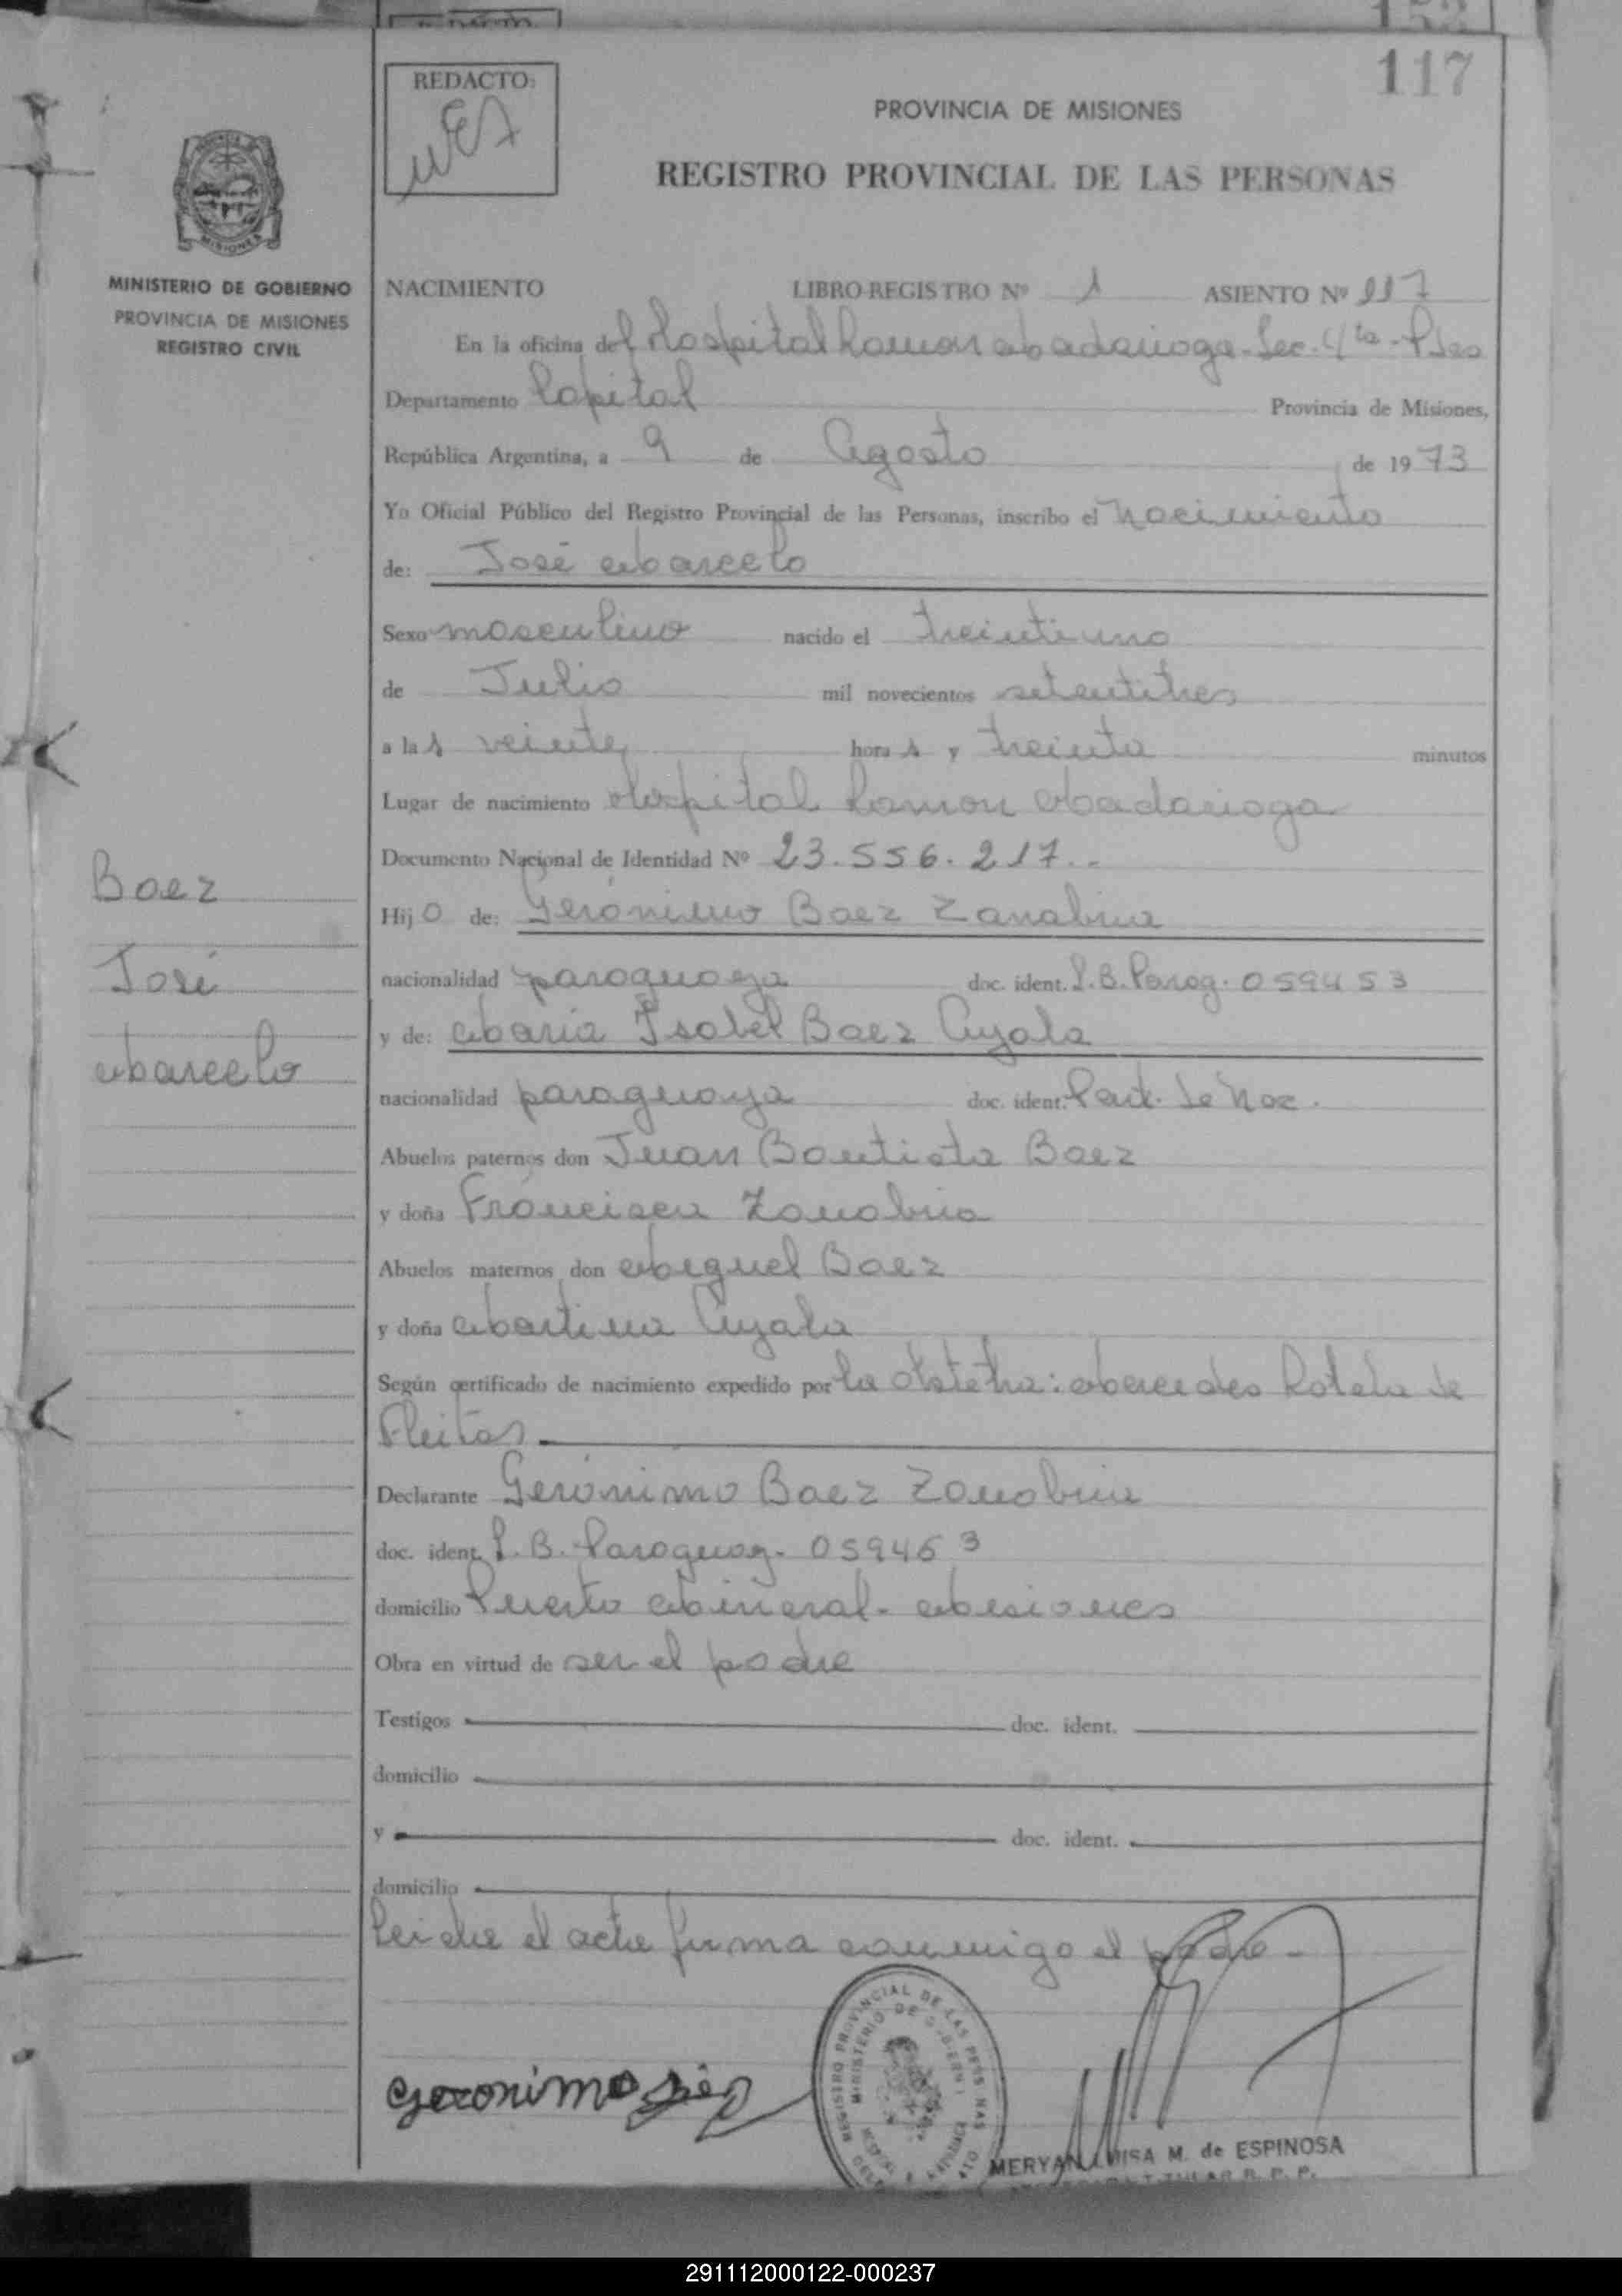 117
REDACTO:
PROVINCIA DE MISIONES
REGISTRO PROVINCIAL DE LAS PERSONAS
MISIONES
MINISTERIO DE GOBIERNO
PROVINCIA DE MISIONES
REGISTRO CIVIL
NACIMIENTO LIBRO REGISTRO Nº 1 ASIENTO Nº 117
En la oficina del Hospital Ramon Madariaga - Sec. 4ta - Pdas
Departamento Capital Provincia de Misiones,
República Argentina, a 9 de Agosto de 1973
Yo Oficial Público del Registro Provincial de las Personas, inscribo el nacimiento
de: José Marcelo
Sexo masculino nacido el treintiuno
de Julio mil novecientos setentitres
a las veinte horas y treinta minutos
Lugar de nacimiento Hospital Ramon Madariaga
Documento Nacional de Identidad Nº 23.556.217.-
Baez
José
Marcelo
Hijo de: Gerónimo Baez Zanabria
nacionalidad paraguaya doc. ident. L.B. Parag. 059453
y de: Maria Isabel Baez Ayala
nacionalidad paraguaya doc. ident. Part. de Nac.
Abuelos paternos don Juan Bautista Baez
y doña Francisca Zanabria
Abuelos maternos don Miguel Baez
y doña Martina Ayala
Según certificado de nacimiento expedido por la Obstetra: Mercedes Rotela de
Fleitas
Declarante Gerónimo Baez Zanabria
doc. ident. L.B. Paraguay. 059453
domicilio Puerto Mineral - Misiones
Obra en virtud de ser el padre
Testigos doc. ident.
domicilio
y doc. ident.
domicilio
Leida el acta firma conmigo el padre -
Geronimo
REGISTRO PROVINCIAL DE LAS PERSONAS
MINISTERIO DE GOBIERNO
MERYAN LUISA M. de ESPINOSA
291112000122-000237